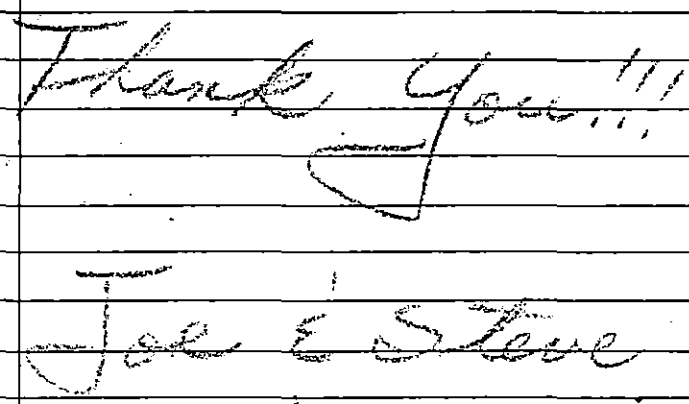 Thank You!!!
Joe & Steve